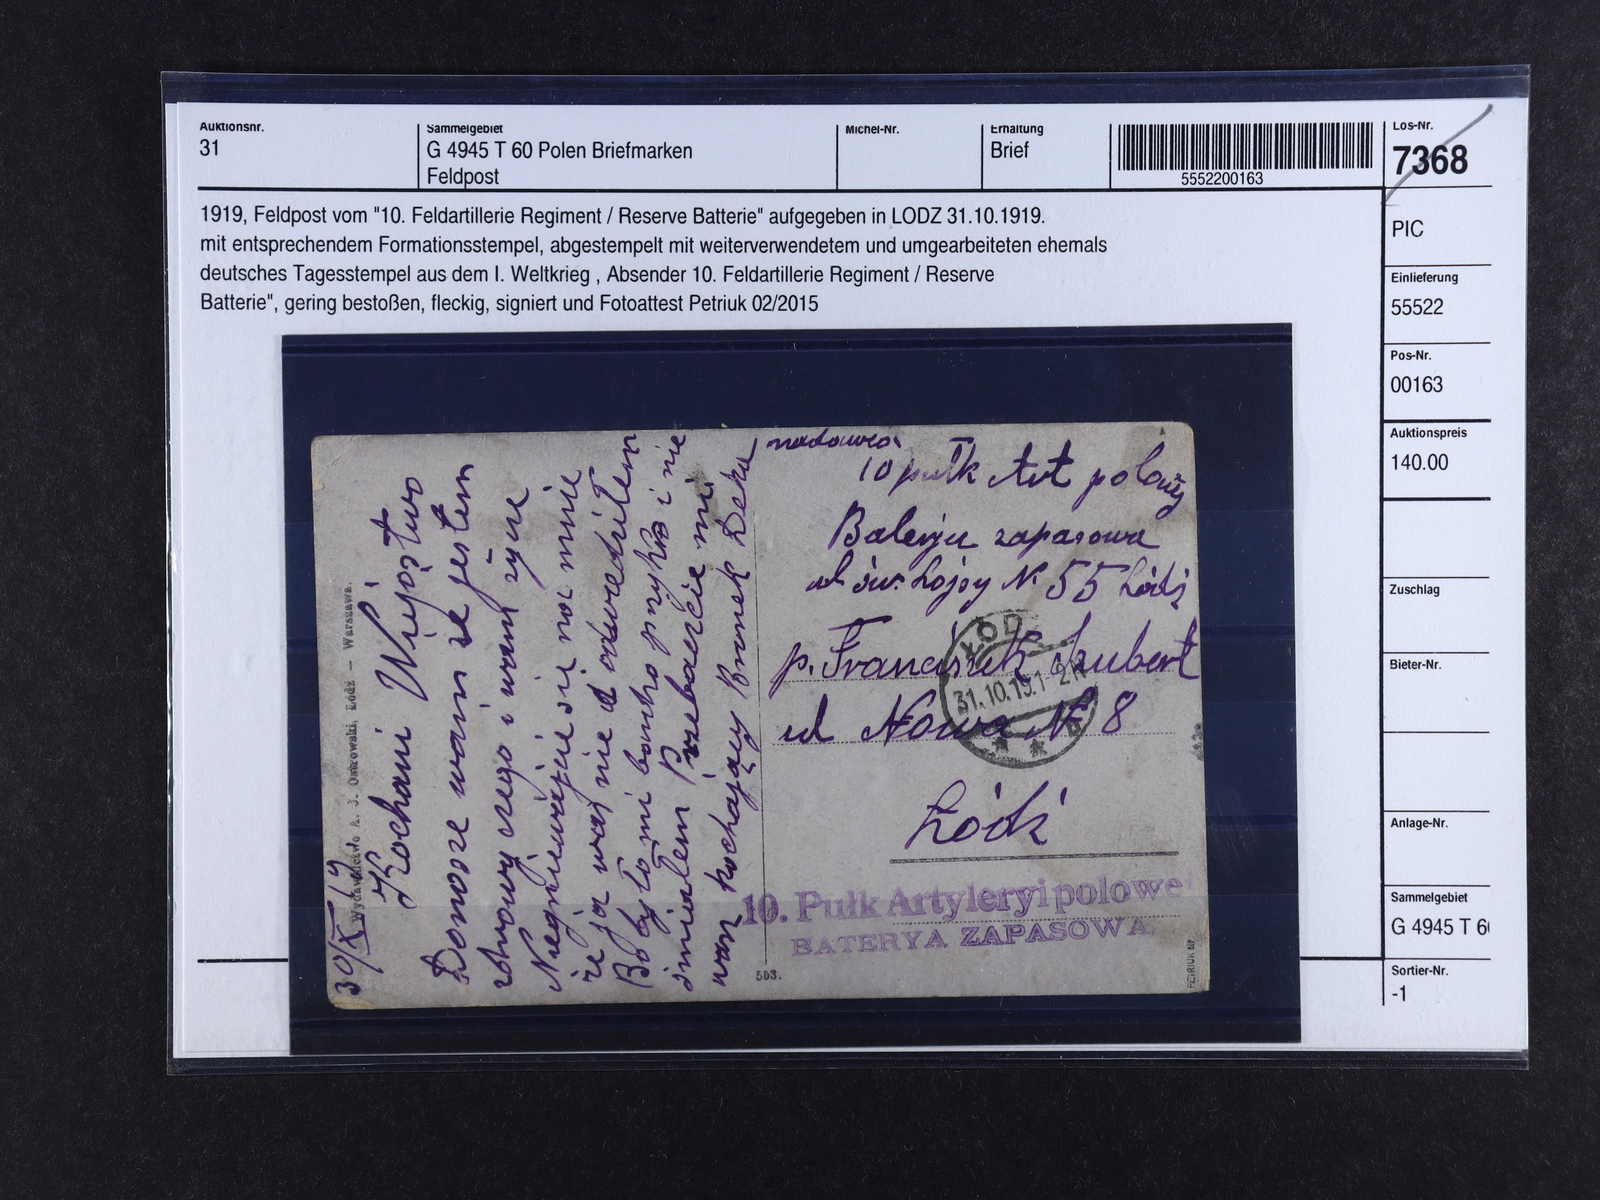 Auktionsnr.
31
Sammelgebiet
G 4945 T 60 Polen Briefmarken
Feldpost
Michel-Nr.
Erhaltung
Brief
5552200163
Los-Nr.
7368
1919, Feldpost vom "10. Feldartillerie Regiment / Reserve Batterie" aufgegeben in LODZ 31.10.1919.
mit entsprechendem Formationsstempel, abgestempelt mit weiterverwendetem und umgearbeiteten ehemals
deutsches Tagesstempel aus dem I. Weltkrieg , Absender 10. Feldartillerie Regiment / Reserve
Batterie", gering bestoßen, fleckig, signiert und Fotoattest Petriuk 02/2015
PIC
Einlieferung
55522
Pos-Nr.
00163
Auktionspreis
140.00
Zuschlag
Bieter-Nr.
Anlage-Nr.
Sammelgebiet
G 4945 T 60
Sortier-Nr.
-1
30/X 19
Wydawnictwo A. J. Ostrowski, Łódź — Warszawa.
Kochani Wujostwo
Donosze wam że jestem
zdrowy czego i wam życze
Niegniewajcie się na mnie
że ja was nie odwedziłem
Bo było mi bardzo przykro i nie
śmiałem Przebaczcie mi
wasz kochający Bronek
nadawca
10 pułk Art polowy
Baterja zapasowa
ul św. N. 55 Łódź
p. Franciszek Szubert
ul Nowa № 8
Łódź
ŁÓDŹ
31.10.19.1-2N
10. Pułk Artyleryi polowej
BATERYA ZAPASOWA.
503.
PETRIUK